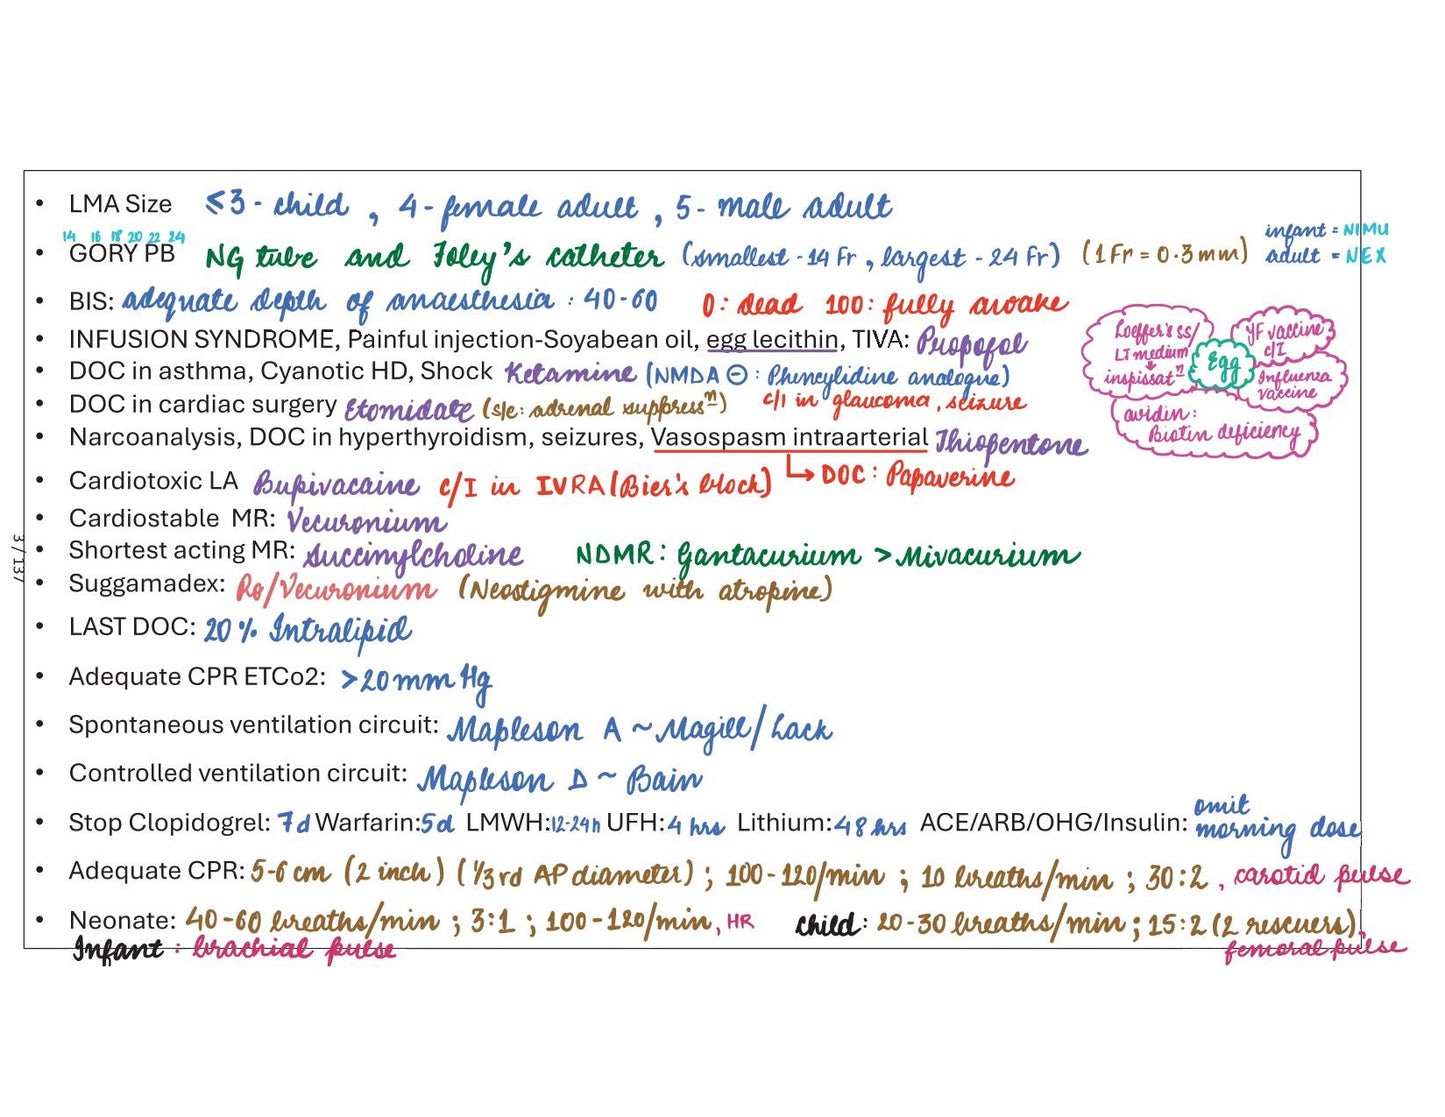 • LMA Size ≤3 - child , 4 - female adult , 5 - male adult
14 16 18 20 22 24
• GORY PB NG tube and Foley's catheter (smallest - 14 Fr , largest - 24 Fr) (1 Fr = 0.3 mm) infant = NIMU
adult = NEX
• BIS: adequate depth of anaesthesia : 40-60 0: dead 100: fully awake
• INFUSION SYNDROME, Painful injection-Soyabean oil, egg lecithin, TIVA: Propofol
• DOC in asthma, Cyanotic HD, Shock Ketamine (NMDA ⊖ : Phencylidine analogue)
• DOC in cardiac surgery Etomidate (s/e: adrenal suppressⁿ) c/I in glaucoma, seizure
• Narcoanalysis, DOC in hyperthyroidism, seizures, Vasospasm intraarterial Thiopentone
↳ DOC : Papaverine
Loeffer's ss/
LJ medium
↓
inspissatⁿ
Egg
YF vaccine
c/I
Influenza
vaccine
avidin:
Biotin deficiency
• Cardiotoxic LA Bupivacaine c/I in IVRA (Bier's block)
• Cardiostable MR: Vecuronium
• Shortest acting MR: Succinylcholine NDMR: Gantacurium > Mivacurium
• Suggamadex: Ro/Vecuronium (Neostigmine with atropine)
• LAST DOC: 20% Intralipid
• Adequate CPR ETCo2: >20 mm Hg
• Spontaneous ventilation circuit: Mapleson A ~ Magill/Lack
• Controlled ventilation circuit: Mapleson D ~ Bain
• Stop Clopidogrel: 7d Warfarin:5d LMWH:12-24h UFH:4 hrs Lithium:48 hrs ACE/ARB/OHG/Insulin: omit
morning dose
• Adequate CPR: 5-6 cm (2 inch) (1/3 rd AP diameter) ; 100-120/min ; 10 breaths/min ; 30:2 , carotid pulse
• Neonate: 40-60 breaths/min ; 3:1 ; 100-120/min, HR child: 20-30 breaths/min ; 15:2 (2 rescuers),
Infant : brachial pulse femoral pulse
3 / 137